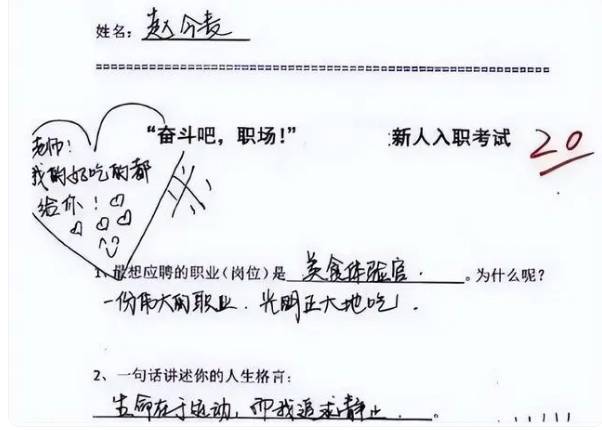 姓名: 赵今麦
"奋斗吧,职场!" 新人入职考试 20
老师!
我的好吃的都
给你!
1、最想应聘的职业(岗位)是 美食体验官. 。为什么呢?
一份伟大的职业.光明正大地吃!.
2、一句话讲述你的人生格言:
生命在于运动,而我追求静止. 。